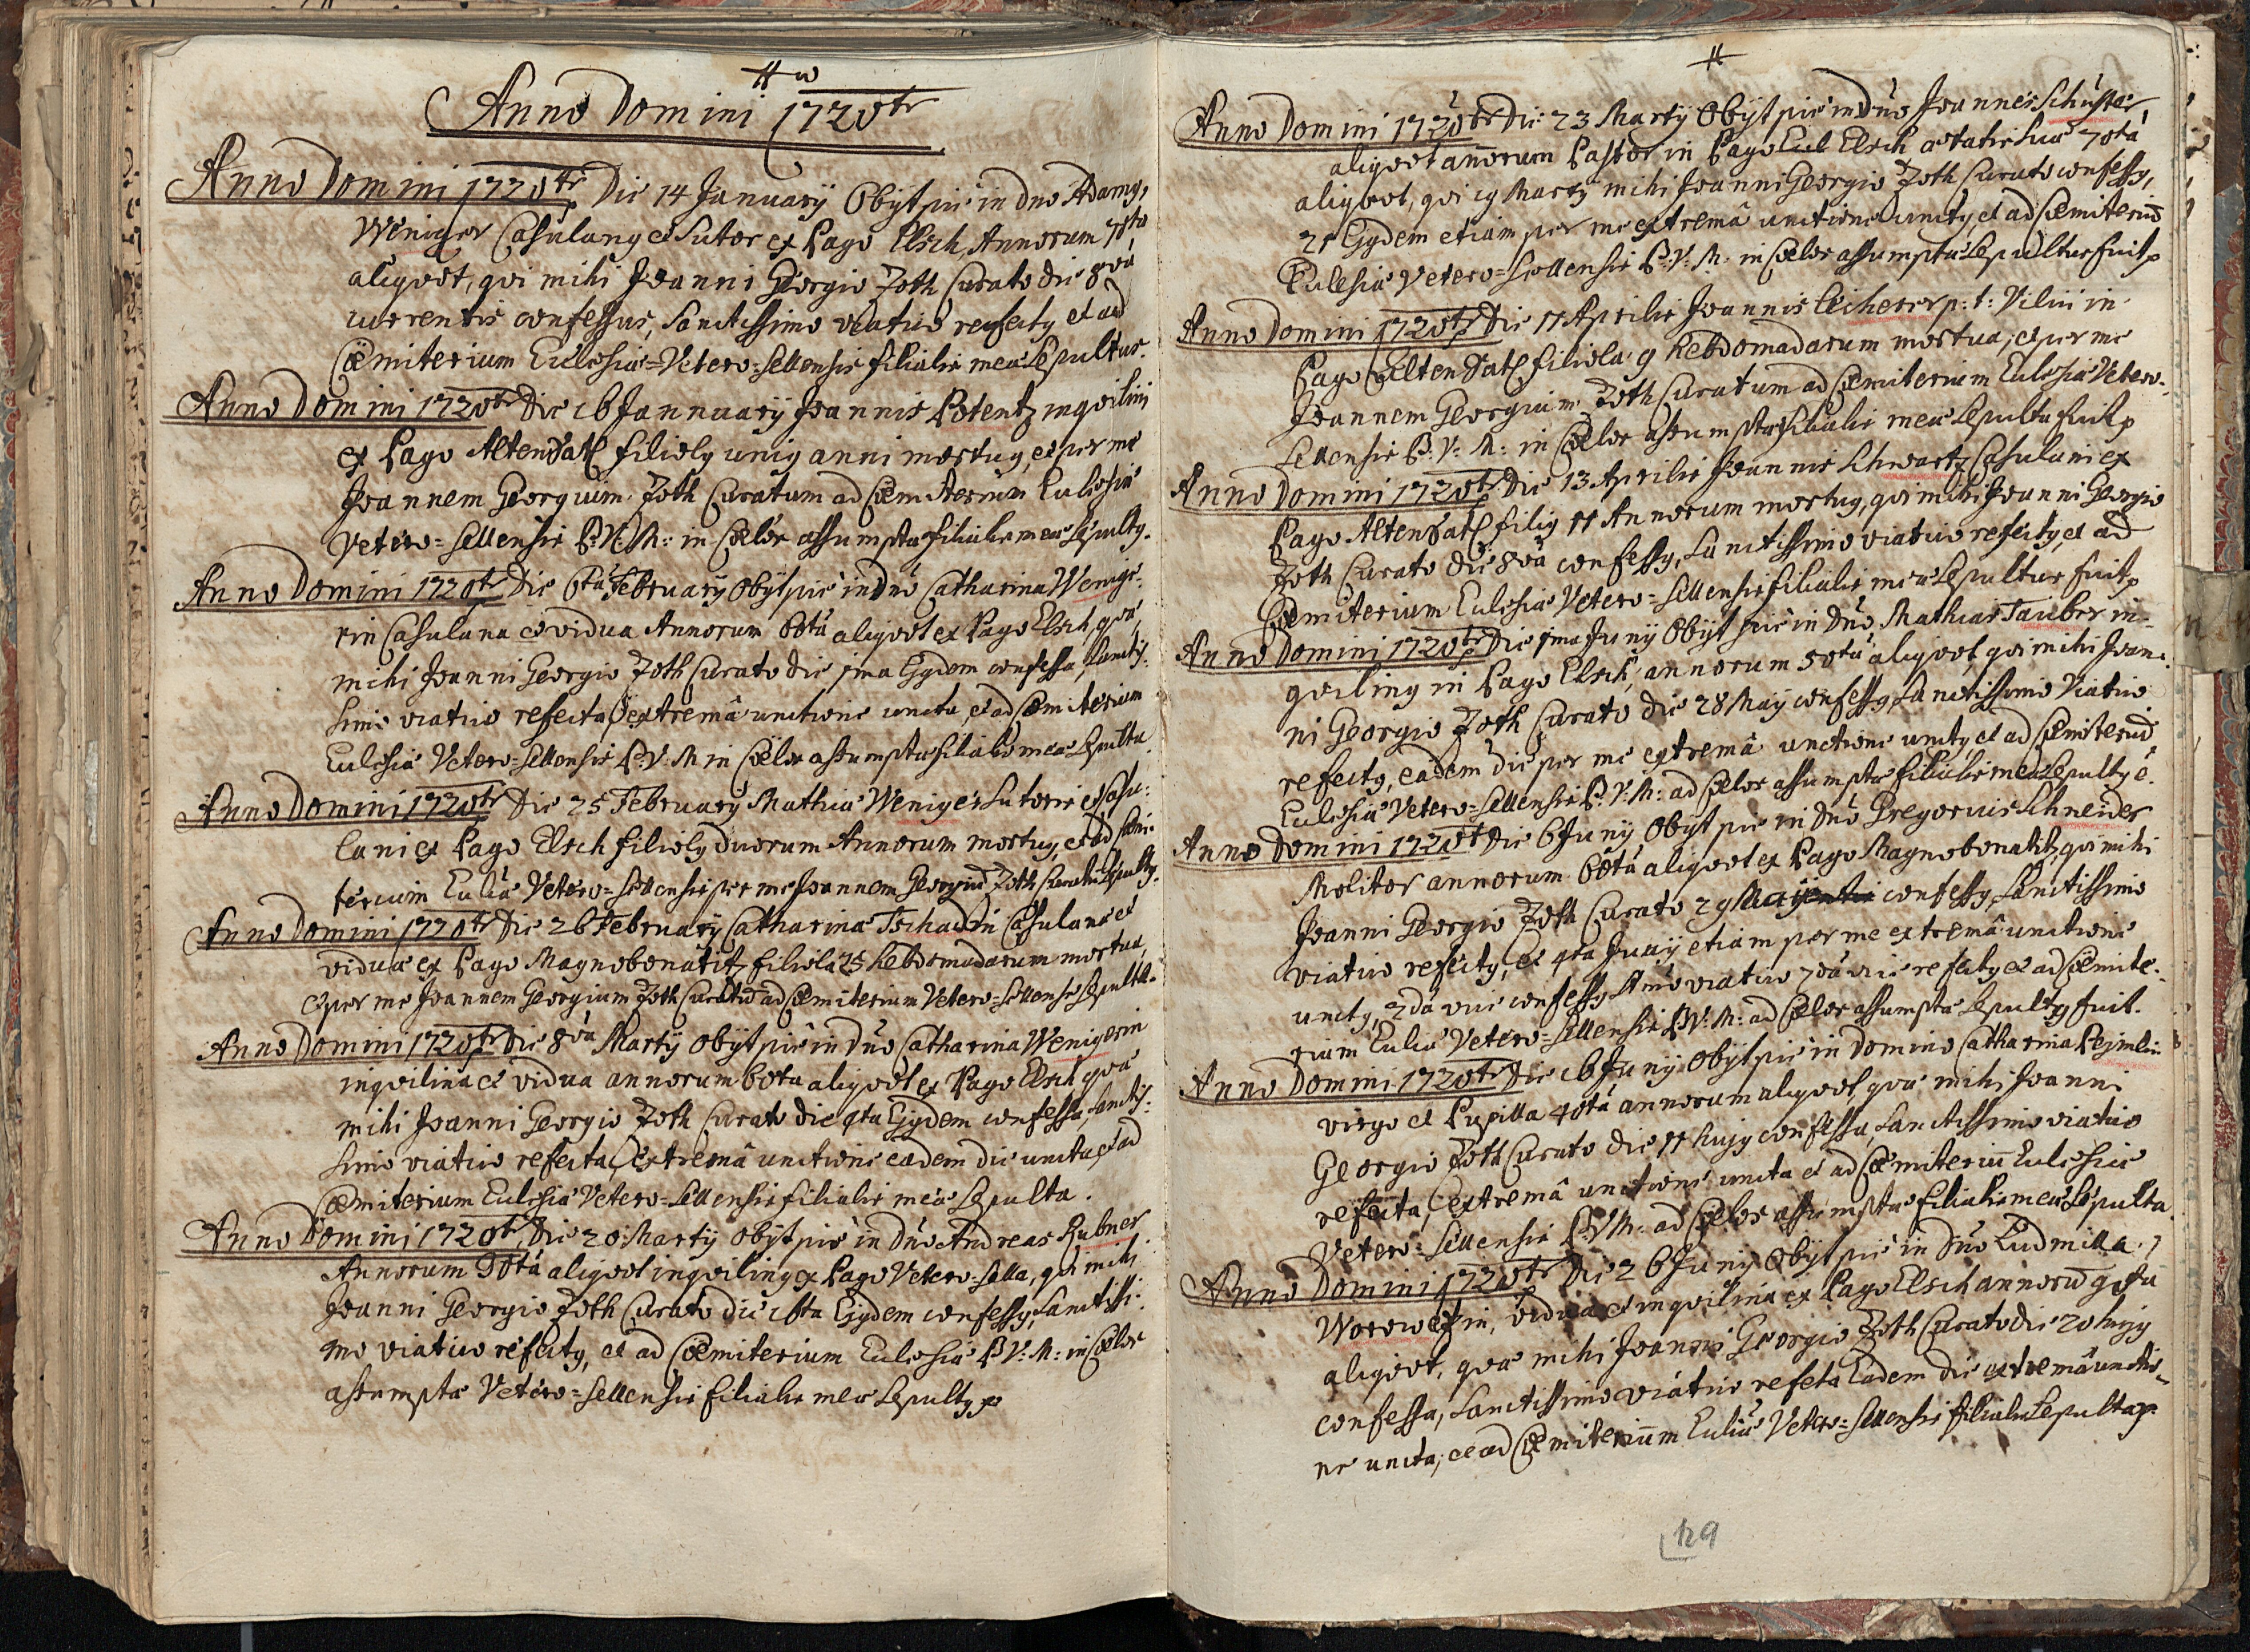 Anno Domini 1720
Anno Domini 1720 Die 14 January Obyt pie in dno Adamg,
Weniger Casulang et Sutor ex Pago Elsch, Annorum
aliqvot, qvi mihi Joanni Georgio Zoth Curato die 8va
currentis confessus, Sanctissimo viatico refectg et ad
Cæmiterium Ecclesiæ Vetero-Sellensis filialis meæ Sepultus.
Anno Domini 1720 Die 16 Jannuary Joannis Potentz inqvilini
ex Pago Altensatl filiolg unig anni mortug, et per me
Joannem Georgium Zoth Curatum ad Cæmiterium Ecclesiæ
Vetero-Sellensis B: V: M: in Cælos assumptæ filialis meæ Sepultg.
Anno Domini 1720 Die 6ta February Obyt pie in dno Catharina Wenige-
rin Casulana et vidua Annorum 60ta aliqvot ex Pago Elsch, qvæ
mihi Joanni Georgio Zoth Curato die 1ma Ejgdem confessa, Sanctis-
simo viatico refecta, extremâ unctione uncta, et ad Cæmiterium
Ecclesiæ Vetero-Sellensis B: V: M in Cælos assumptæ filialis meæ Sepulta.
Anno Domini 1720 Die 25 February Mathiæ Weniger Sutoris et Casu-
lani ex Pago Elsch filiolg duorum Annorum mortug, et ad Cæmi-
terium Eccliæ Vetero-Sellensis per me Joannem Georgiū Zoth Curatū Sepultg.
Anno Domini 1720 Die 26 February Catharinæ Tschadin Casulanæ et
viduæ ex Pago Magnobonatitz filiola 25 hebdomadarum mortua,
et per me Joannem Georgium Zoth Curatū ad Cæmiterium Vetero-Sellense Sepulta.
Anno Domini 1720 Die 8va Marty obyt pie in Dno Catharina Wenigerin
inqvilina et vidua annorum 60ta aliqvot ex Pago Elsch qvæ
mihi Joanni Georgio Zoth Curato die 4ta Ejgdem confessa, Sanctis-
simo viatico refecta, extremâ unctione eadem die uncta, et ad
Cæmiterium Ecclesiæ Vetero-Sellensis filialis meæ Sepulta.
Anno Domini 1720 Die 20 Marty obyt pie in Dno Andreas Rubner
Annorum aliqvot inqviling ex Pago Vetero-Sella, qvi mihi
Joanni Georgio Zoth Curato die 16ta Ejgdem confessg, Sanctissi-
mo viatico refectg, et ad Cæmiterium Ecclesiæ B: V: M: in Cælos
assumptæ Vetero-Sellensis filialis meæ Sepultg
Anno Domini 1720 Die 23 Marty Obyt pie in Dno Joannes Schuster
aliqvot annorum Pastor in Pago Elsch ætatis suæ 70ta
aliqvot, qvi 19 Marty mihi Joanni Georgio Zoth Curato confessg,
21 Ejgdem etiam per me extremâ unctione unctg, et ad Cæmiteriū
Ecclesiæ Vetero-Sellensis B: V: M: in Cælos assumptæ Sepultus fuit
Anno Domini 1720 Die 11 Aprilis Joannis p: t: Vilici in
Pago Altensatl filiola 9 hebdomadarum mortua, et per me
Joannem Georgium Zoth Curatum ad Cæmiterium Ecclesiæ Vetero-
Sellensis B: V: M: in Cælos assumptæ filialis meæ Sepulta fuit
Anno Domini 1720 Die 13 Aprilis Joannis Schwartz Casulani ex
Pago Altensatl filig 11 Annorum mortug, qvi mihi Joanni Georgio
Zoth Curato die 8va confessg, Sanctissimo viatico refectg, et ad
Cæmiterium Ecclesiæ Vetero-Sellensis filialis meæ Sepultus fuit
Anno Domini 1720 Die 1ma Juny Obyt pie in Dno Mathias Tauber in-
qviling in Pago Elsch, annorum 50ta aliqvot, qvi mihi Joan-
ni Georgio Zoth Curato die 28 May confessg, Sanctissimo Viatico
refectg, eadem die per me extremâ unctione unctg, et ad Cæmiteriū
Ecclesiæ Vetero-Sellensis B: V: M: ad Cælos assumptæ filialis meæ Sepultg ē.
Anno Domini 1720 Die 6 Juny Obyt pie in Dno Gregorius Schneider
Molitor annorum 60ta aliqvot ex Pago Magnobonatitz, qvi mihi
Joanni Georgio Zoth Curato 29 May confessg, Sanctissimo
viatico refectg, et 4ta Juny etiam per me extremâ unctione
unctg, 2da vice confessg Ssmo viatico 2da vice refectg et ad Cæmite-
rium Eccliæ Vetero-Sellensis B: V: M: ad Cælos assumptæ Sepultg fuit.
Anno Domini 1720 Die 16 Juny Obyt pie in Domino Catharina
virgo et Pupilla 40ta annorum aliqvot, qvæ mihi Joanni
Georgio Zoth Curato die 11 hujg confessa, Sanctissimo viatico
refecta, extremâ unctione uncta et ad Cæmiteriū Ecclesiæ
Vetero-Sellensis B: V: M: ad Cælos assumptæ filialis meæ Sepulta.
Anno Domini 1720 Die 26 Juny Obyt pie in Dno Ludmilla
vidua et inqvilina ex Pago Elsch annorū
aliqvot, qvæ mihi Joanni Georgio Zoth Curato die 20 hujg
confessa, Sanctissimo viatico refecta Eadem die extremâ unctio-
ne uncta, et ad Cæmiteriūm Eccliæ Vetero-Sellensis filialis Sepulta
129